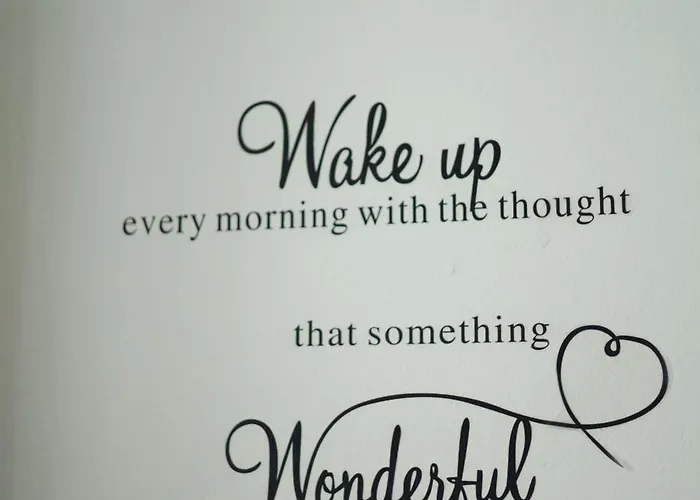 Wake up
every morning with the thought
that something
Wonderful